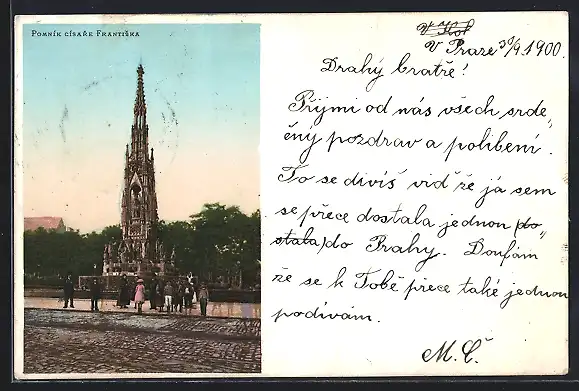 Pomník císaře Františka
V Praze 30/4. 1900.
Drahý bratře!
Přijmi od nás všech srde„
čný pozdrav a políbení.
To se divíš viď že já sem
se přece dostala jednou (do„
stala) do Prahy. Doufám
že se k Tobě přece také jednou
podívám.
M. Č.